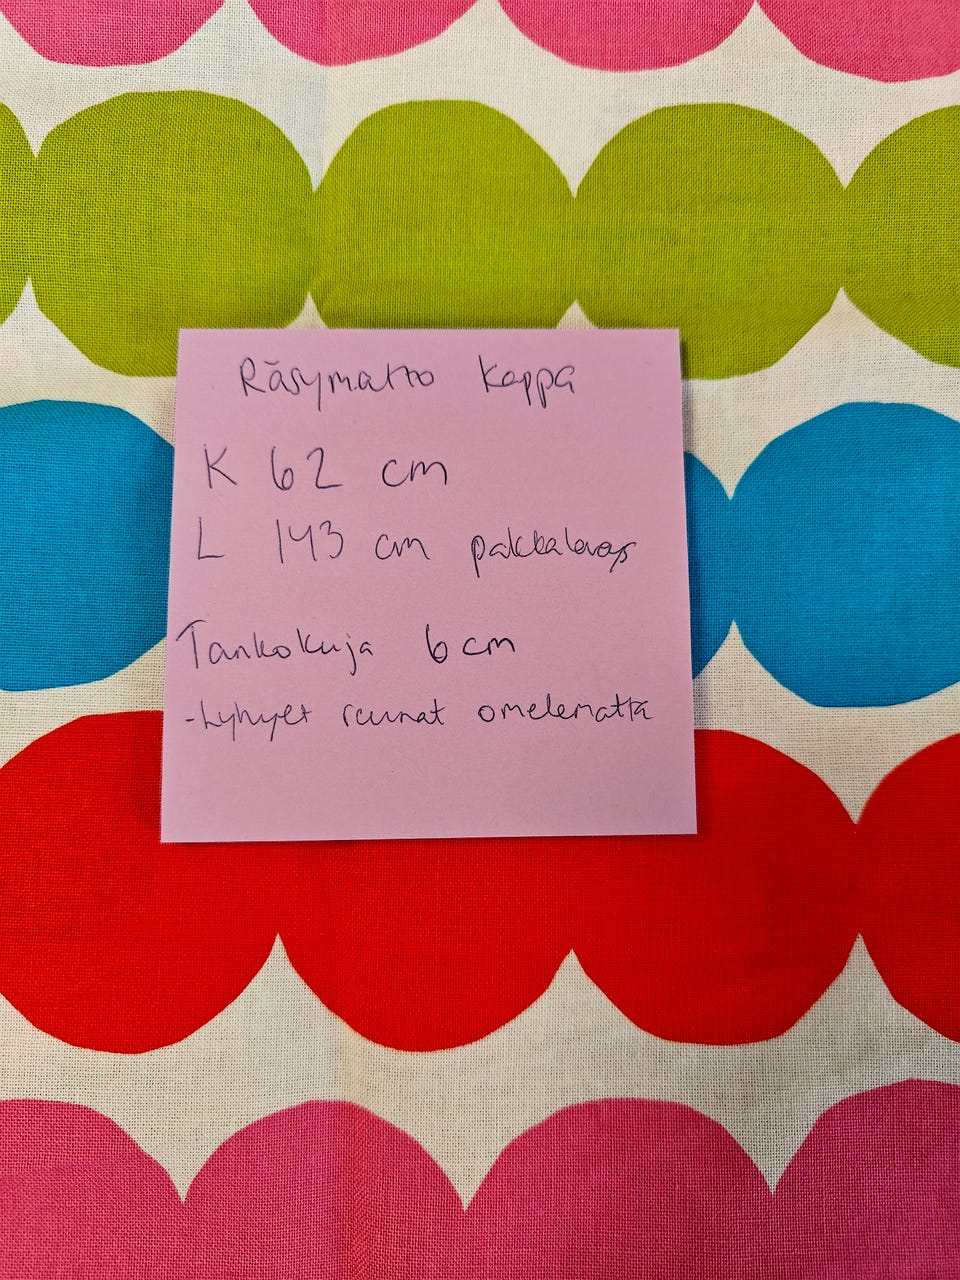 Räsymatto kappa
K 62 cm
L 143 cm pakkaleveys
Tankokuja 6 cm
- Lyhyet reunat ompelematta